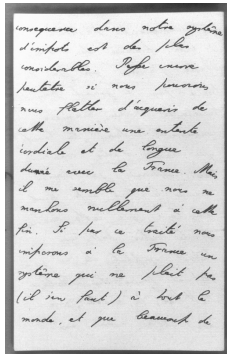 consequence dans notre système
d'impots est des plus
considerables. Passe encore
peutetre si nous pouvons
nous flatter d'acquerir de
cette manière une entente
cordiale et de longue
durée avec la France. Mais
il me semble que nous ne
marchons nullement à cette
fin. Si par ce traité nous
imposons à la France un
système qui ne plait pas
(il s'en faut) à tout le
monde, et que beaucoup de